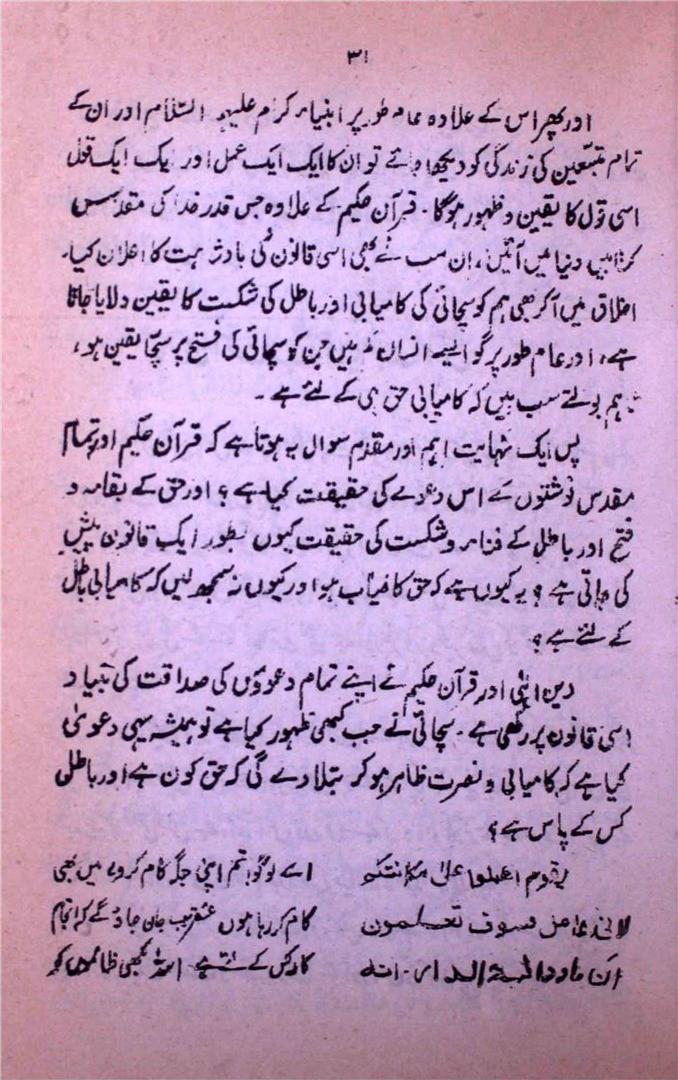 ۳۱
اور پھر اس کے علاوہ عام طور پر انبیاء کرام علیہم السّلام اور ان کے
تمام متبّعین کی زندگی کو دیکھا جائے تو ان کا ایک ایک عمل اور ایک ایک قول
اسی قول کا یقین و ظہور ہوگا۔ قرآن حکیم کے علاوہ جس قدر خدا کی مقدّس
کتابیں دنیا میں آئیں، ان سب نے بھی اسی قانون کی بادشاہت کا اعلان کیا۔
اخلاق میں آکر بھی ہم کو سچائی کی کامیابی اور باطل کی شکست کا یقین دلایا جاتا
ہے، اور عام طور پر گو ایسے انسان کم ہیں جن کو سچائی کی فتح پر سچّا یقین ہو،
تاہم بولتے سب ہیں کہ کامیابی حق ہی کے لئے ہے۔
پس ایک نہایت اہم اور مقدّم سوال یہ ہوتا ہے کہ قرآن حکیم اور تمام
مقدس نوشتوں کے اس دعوے کی حقیقت کیا ہے؟ اور حق کے بقاء و
فتح اور باطل کے فناء و شکست کی حقیقت کیوں بطور ایک قانون پیش
کی جاتی ہے؟ یہ کیوں ہے کہ حق کامیاب ہو اور کیوں نہ سمجھ لیں کہ کامیابی باطل
کے لئے ہے؟
دین الٰہی اور قرآن حکیم نے اپنے تمام دعوؤں کی صداقت کی بنیاد
اسی قانون پر رکھی ہے۔ سچائی نے جب کبھی ظہور کیا ہے تو ہمیشہ یہی دعویٰ
کیا ہے کہ کامیابی و نصرت ظاہر ہو کر بتلا دے گی کہ حق کون ہے اور باطل
کس کے پاس ہے؟
یقوم اعملوا علیٰ مکانتکم اے لوگو! تم اپنی جگہ کام کرو، میں بھی
انی عامل فسوف تعلمون کام کر رہا ہوں عنقریب جان جاؤ گے کہ انجام
عاقبة الدار۔ انہ کار کس کے لئے ہے۔ اللہ کبھی ظالموں کو